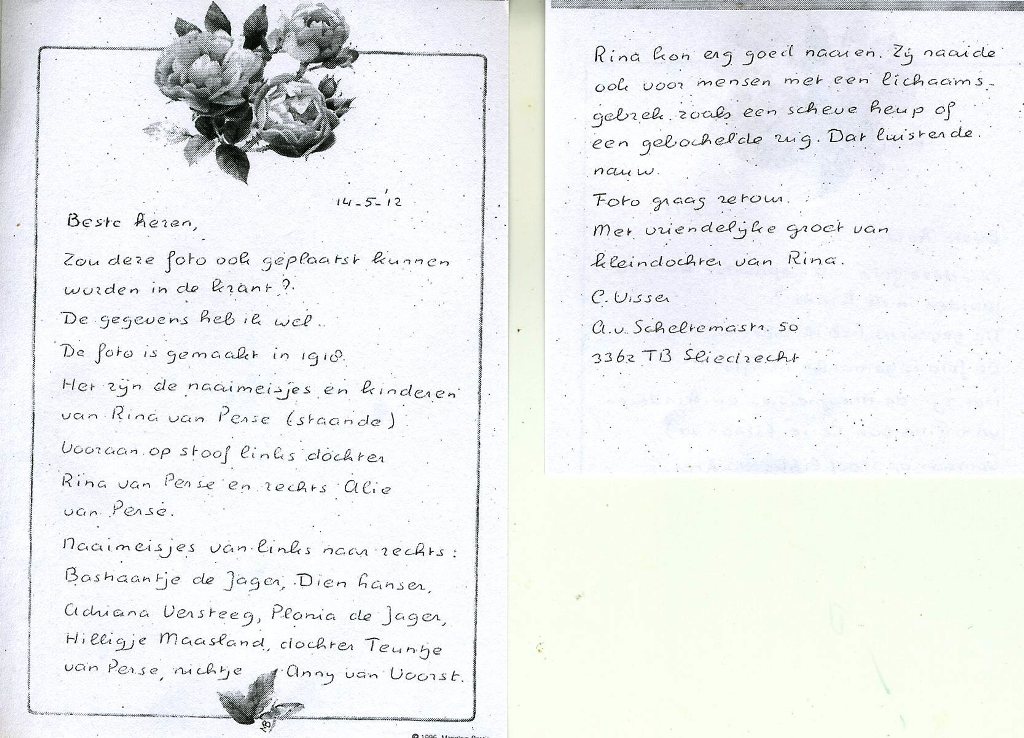 14-5-'12
Beste heren,
Zou deze foto ook geplaatst kunnen
worden in de krant?
De gegevens heb ik wel.
De foto is gemaakt in 1918.
Het zijn de naaimeisjes en kinderen
van Rina van Perse (staande)
Vooraan op stoof links dochter
Rina van Perse en rechts Alie
van Perse.
Naaimeisjes van links naar rechts:
Bastiaantje de Jager, Dien Kanser,
Adriana Versteeg, Plonia de Jager,
Hilligje Maasland, dochter Teuntje
van Perse, nichtje Anny van Voorst.
© 1996
Rina kon erg goed naaien. Zij naaide
ook voor mensen met een lichaams-
gebrek zoals een scheve heup of
een gebochelde rug. Dat luisterde
nauw.
Foto graag retour.
Met vriendelijke groet van
kleindochter van Rina.
C. Visser
A.v. Scheltemastr. 50
3362 TB Sliedrecht